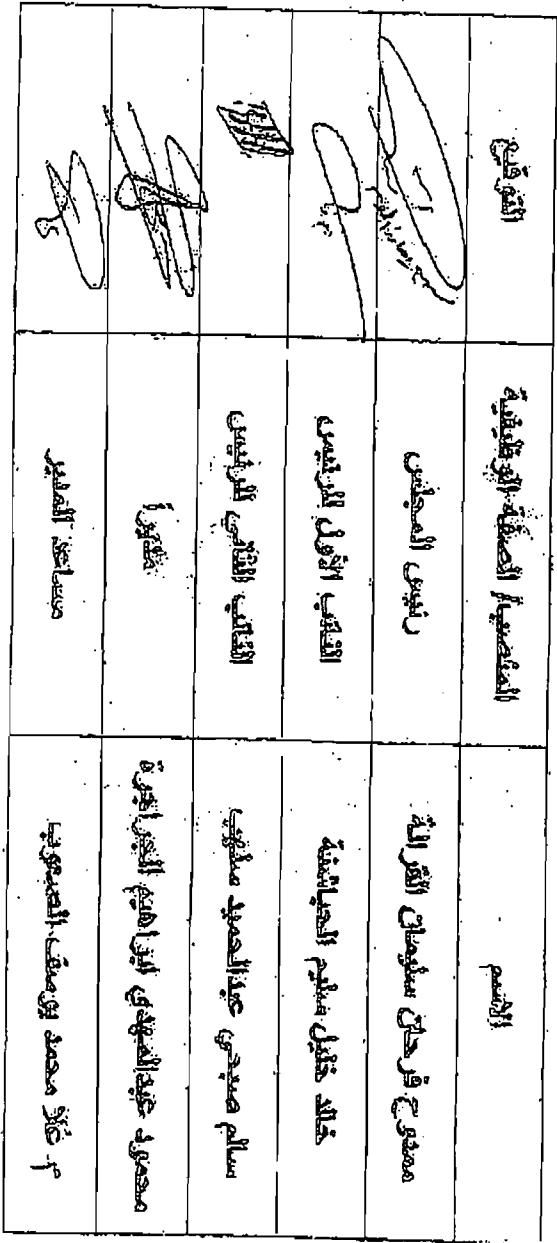 الاسم	المنصب/ الصفة الوظيفية	التوقيع
ممدوح فرحان سليمان القرالة	رئيس المجلس
خالد خليل سليم الحياصنة	النائب الأول للرئيس
سالم صبحي عبدالحميد	النائب الثاني للرئيس
محمود عبدالمهدي ابراهيم الجراجرة	مديراً
م. علا محمد يوسف	مساعد المدير